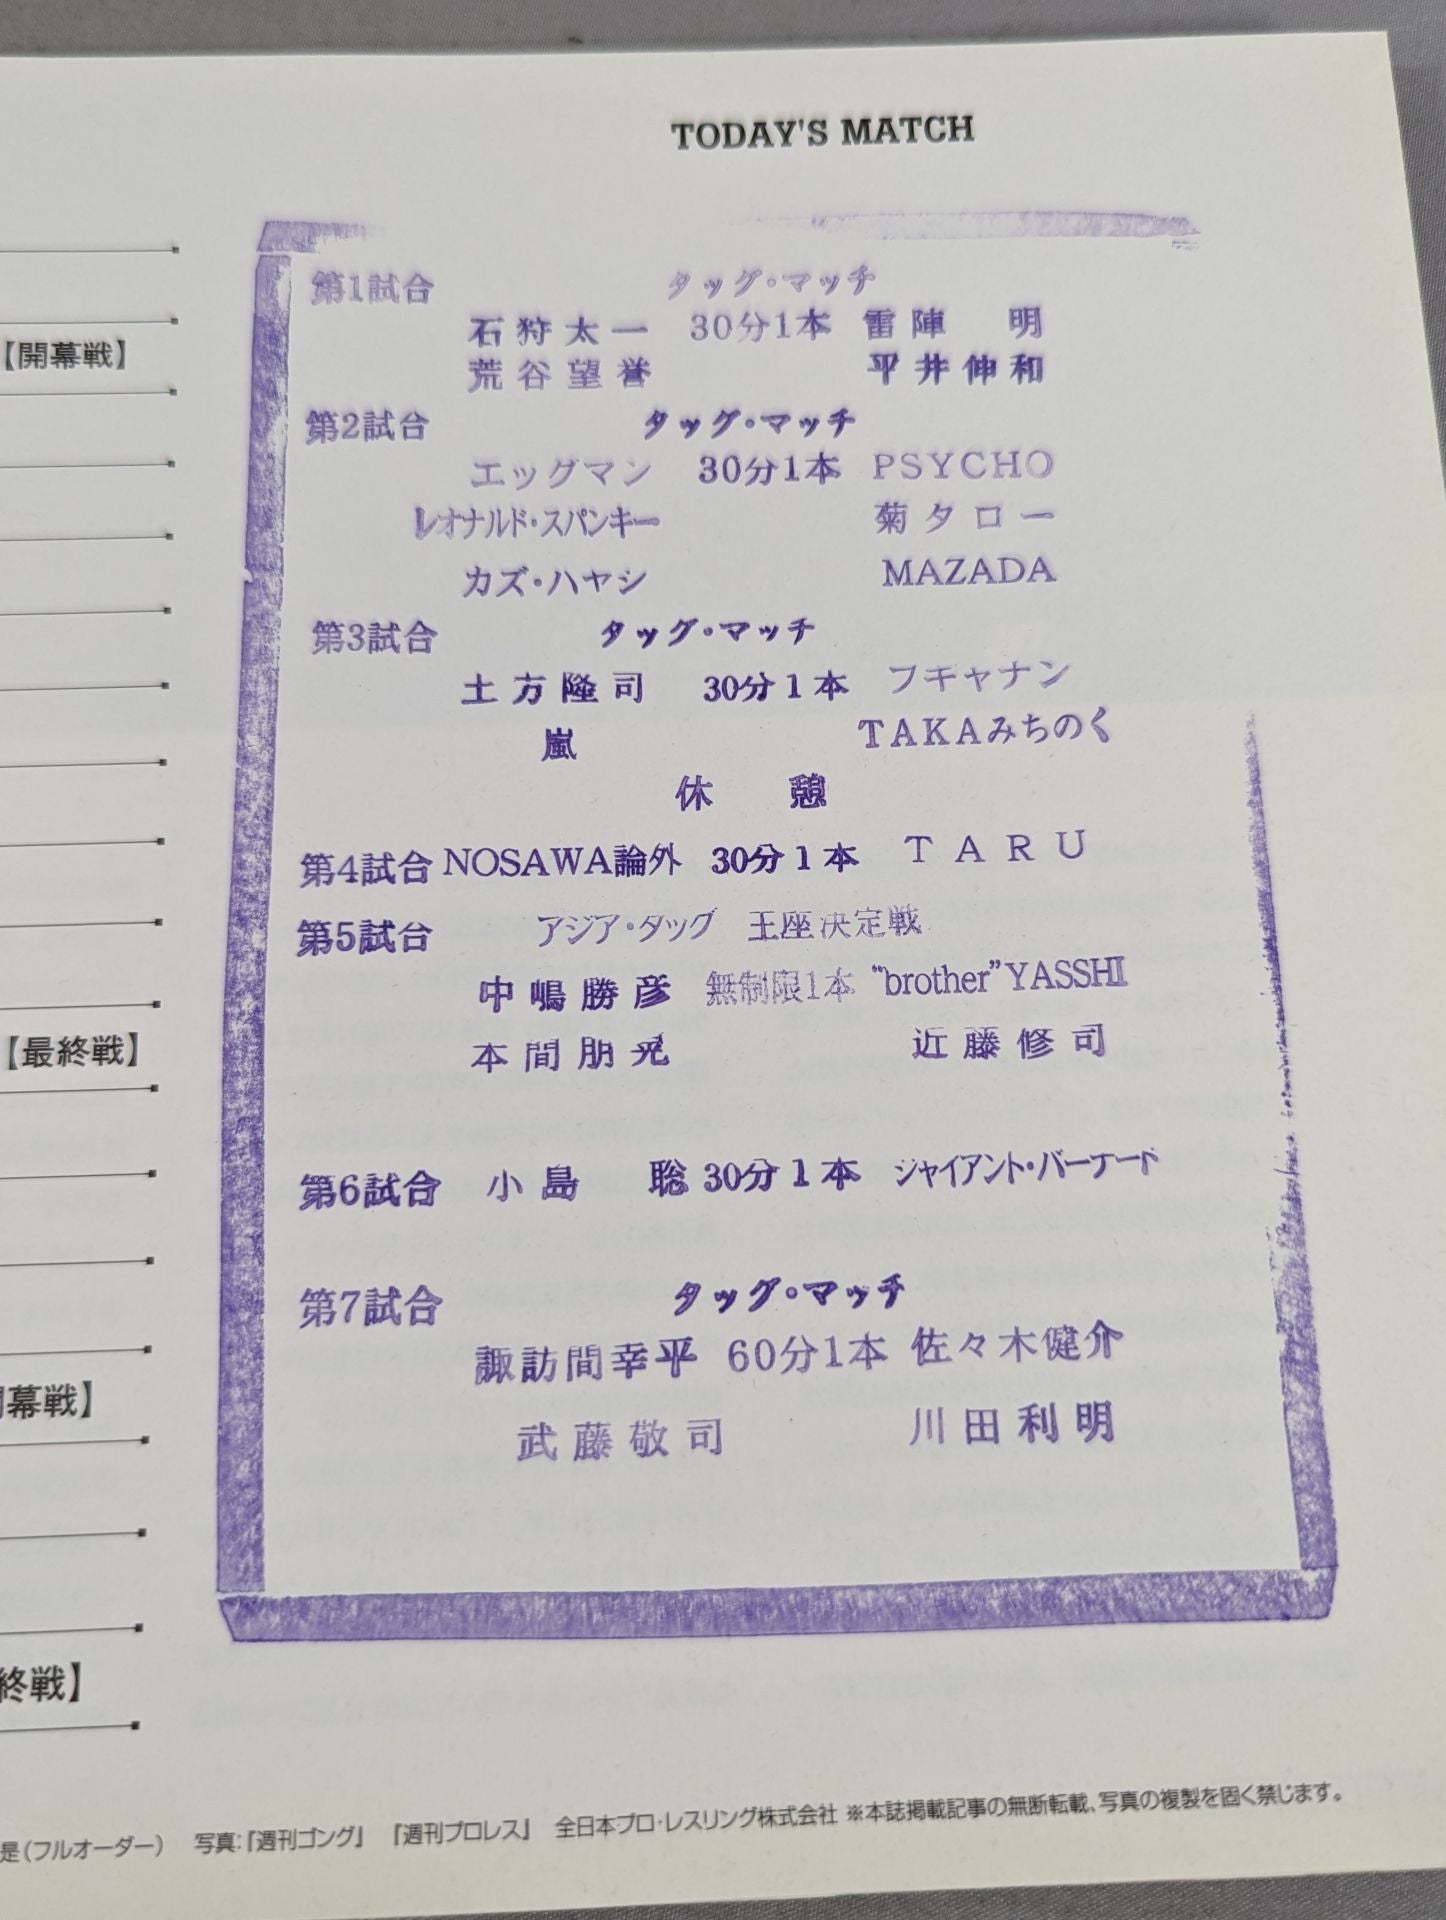 TODAY'S MATCH
第1試合 タッグ・マッチ
石狩太一 30分1本 雷陣 明
荒谷望誉 平井伸和
【開幕戦】
第2試合 タッグ・マッチ
エッグマン 30分1本 PSYCHO
レオナルド・スパンキー 菊タロー
カズ・ハヤシ MAZADA
第3試合 タッグ・マッチ
土方隆司 30分1本 ブキャナン
嵐 TAKAみちのく
休 憩
第4試合 NOSAWA論外 30分1本 TARU
第5試合 アジア・タッグ 王座決定戦
中嶋勝彦 無制限1本 "brother"YASSHI
本間朋晃 近藤修司
【最終戦】
第6試合 小島 聡 30分1本 ジャイアント・バーナード
第7試合 タッグ・マッチ
諏訪間幸平 60分1本 佐々木健介
武藤敬司 川田利明
幕戦】
終戦】
是(フルオーダー) 写真:『週刊ゴング』 『週刊プロレス』 全日本プロ・レスリング株式会社 ※本誌掲載記事の無断転載、写真の複製を固く禁じます。